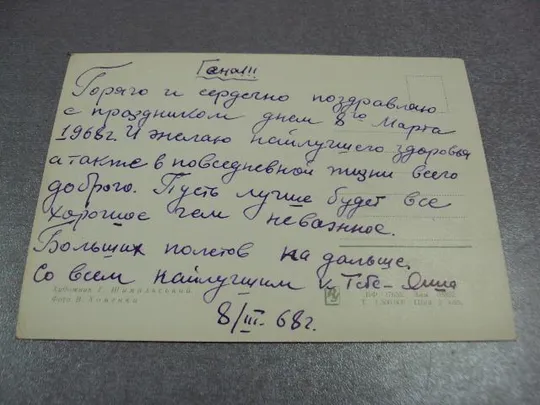 Гена!!!
Горячо и сердечно поздравляю
с праздником днем 8го Марта
1968г. И желаю найлучшего здоровья
а также в повседневной жизни всего
доброго. Пусть лучше будет все
хорошое чем неважное.
Больших полетов на дальше.
Со всем найлучшим к Тебе-
Художник Г. Шимальский
Фото В. Хоменко
8/III-68г.